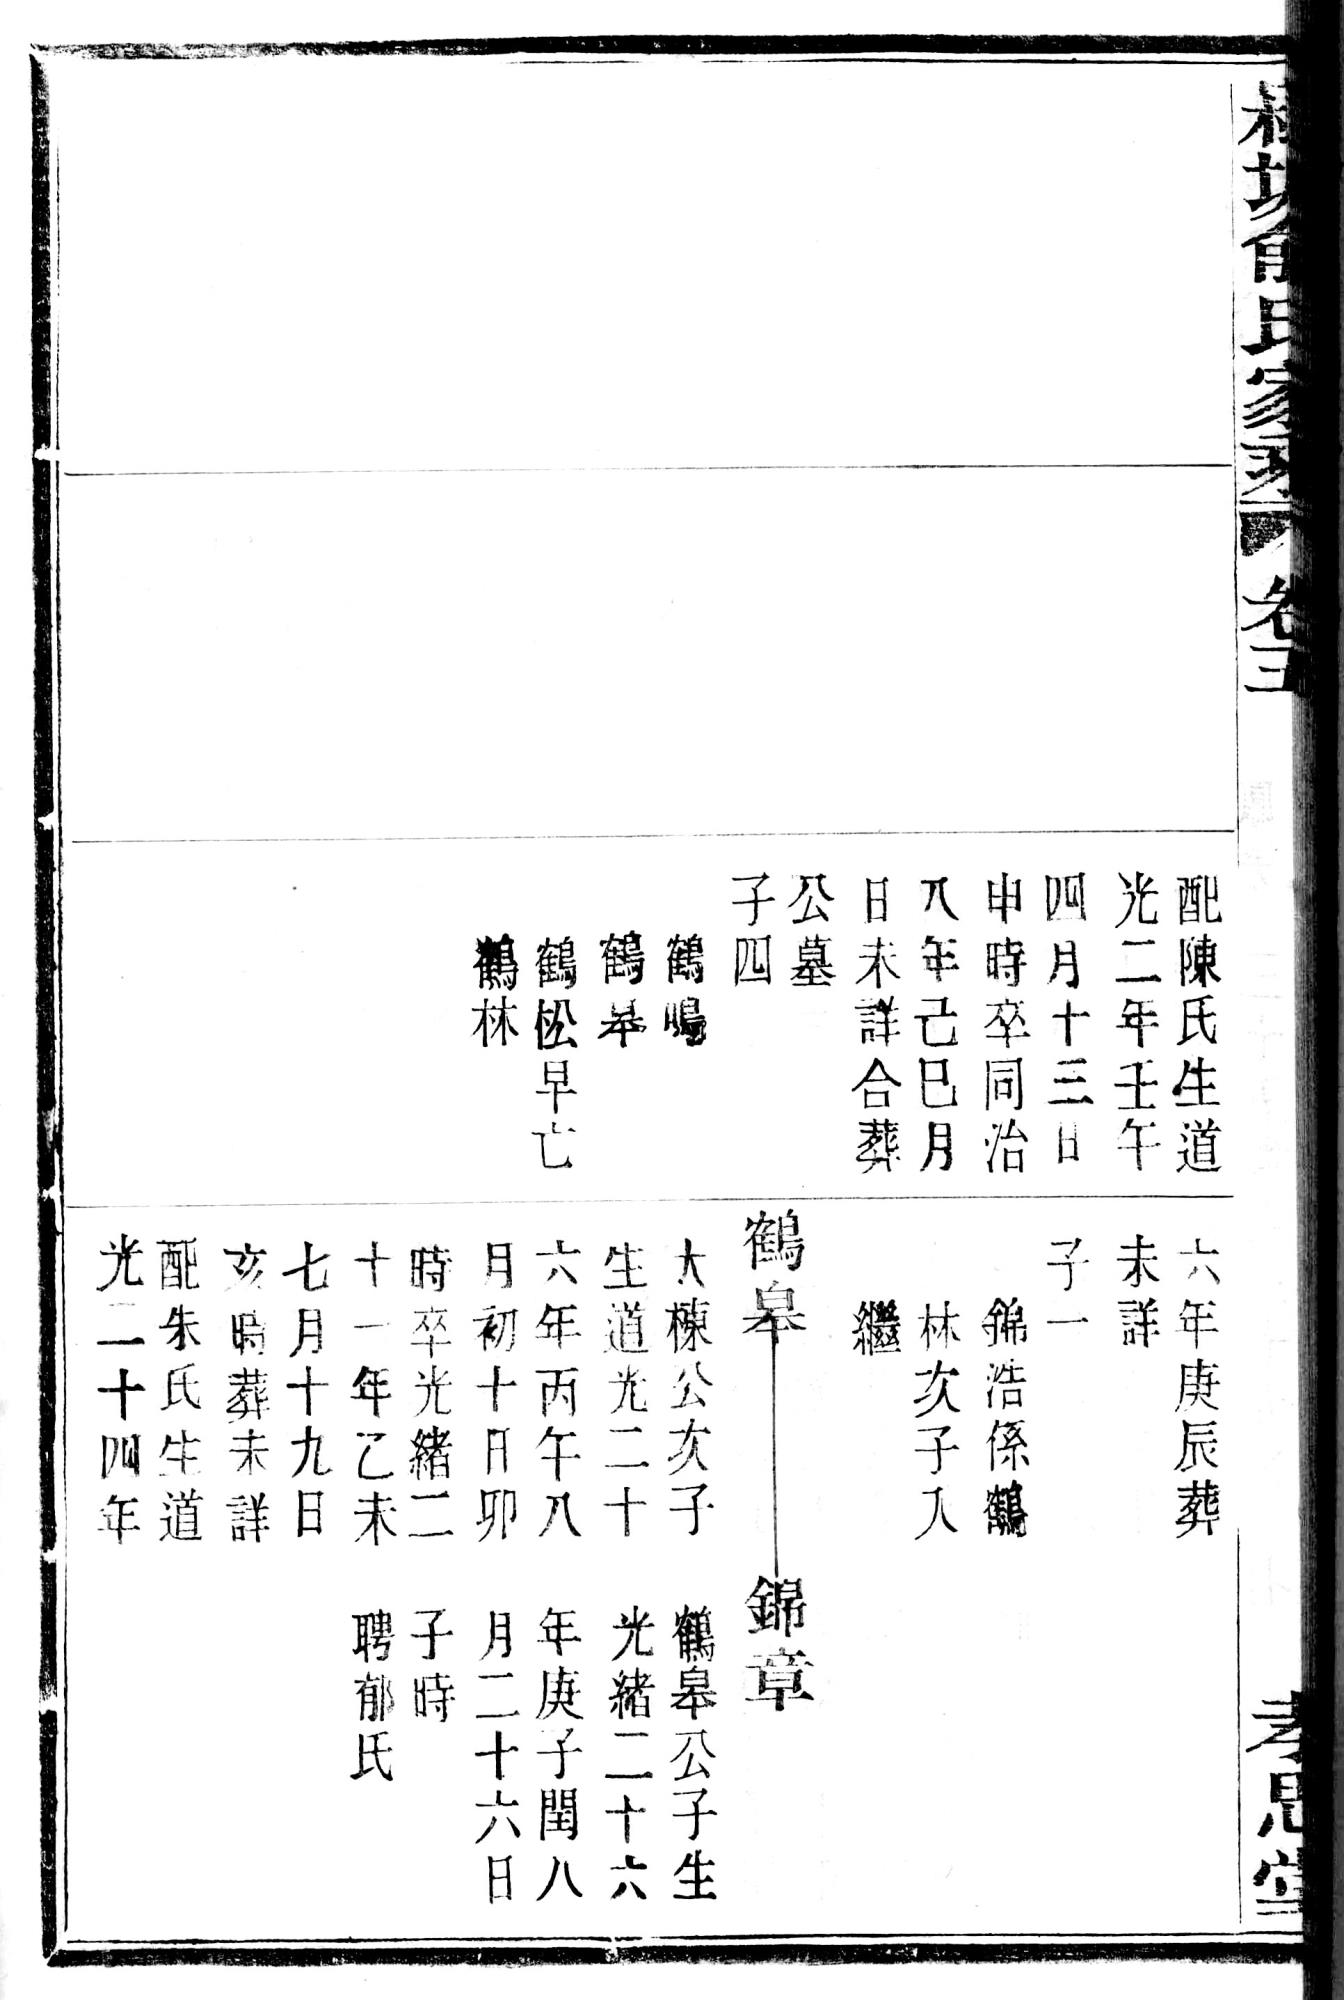 俞氏家乘
卷五
孝思堂
配陳氏生道
光二年壬午
四月十三日
申時卒同治
八年己巳月
日未詳合葬
公墓
子四
鶴鳴
鶴皋
鶴松早亡
鶴林
六年庚辰葬
未詳
子一
錦浩係鶴
林次子入
繼
鶴皋
大棟公次子
生道光二十
六年丙午八
月初十日卯
時卒光緒二
十一年乙未
七月十九日
亥時葬未詳
配朱氏生道
光二十四年
錦章
鶴皋公子生
光緒二十六
年庚子閏八
月二十六日
子時
聘郁氏